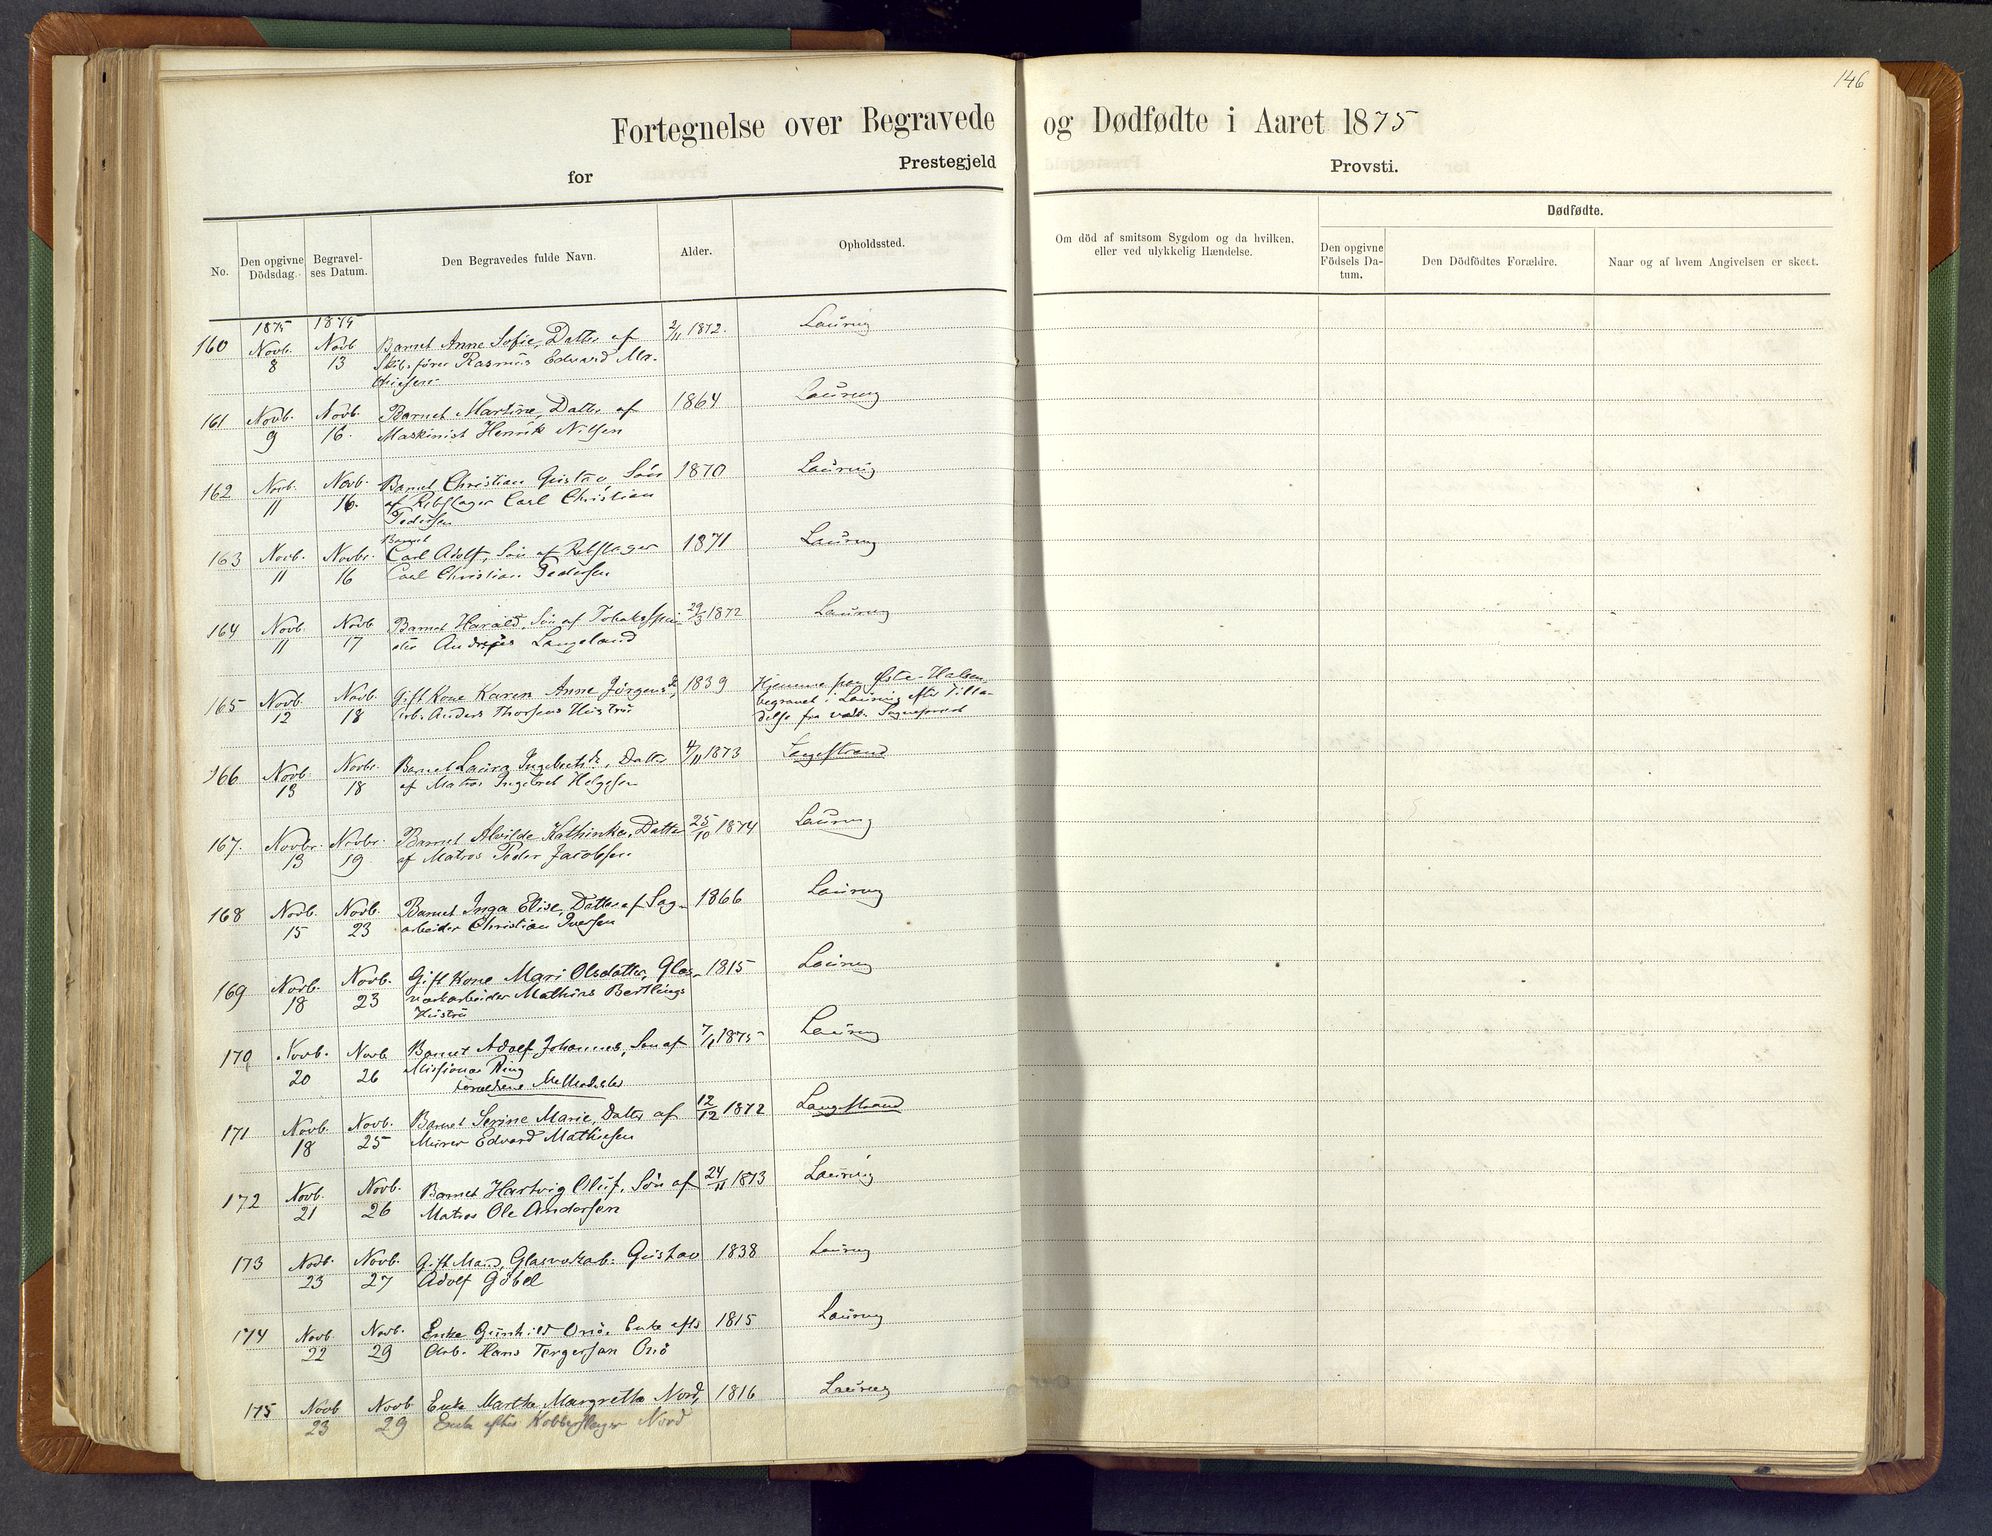 146
Fortegnelse over Begravede og Dødfødte i Aaret 1875
for Prestegjeld Provsti.
No.
Den opgivne Dödsdag.
Begravelses Datum.
Den Begravedes fulde Navn.
Alder.
Opholdssted.
Om död af smitsom Sygdom og da hvilken, eller ved ulykkelig Hændelse.
Dødfødte.
Den opgivne Födsels Datum.
Den Dödfödtes Forældre.
Naar og af hvem Angivelsen er skeet.
1875 1875
160 Novb. 8 Novb 13 Barnet Anne Sofie, Datter af 2/11 1872. Laurvig
Skibsfører Rasmus Edvard Ma-
thiesen
161 Novb. 9 Novb. 16. Barnet Martine, Datter af 1864 Laurvig
Maskinist Henrik Nilsen
162 Novb. 11 Novb. 16. Barnet Christian Gustav, Sön 1870 Laurvig
af Rebslager Carl Christian
Pedersen
163 Novb. 11 Novbr. 16 Barnet
Carl Adolf, Sön af Rebslager 1871 Laurvig
Carl Christian Pedersen
164 Novb. 11 Novb 17 Barnet Harald, Sön af Tobaksspin- 29/3 1872 Laurvig
der Andreas Langeland
165 Novb. 12 Novb. 18 Gift Kone Karen Anne Jörgensd., 1839 Hjemme paa Østre-Halsen,
Arb. Anders Thorsens Hustru begravet i Laurvig efter Tilla-
delse fra vedk. Sogneprest
166 Novb. 13 Novbr. 18 Barnet Laura Ingebretsd., Datter 4/11 1873 Langestrand
af Matros Ingebret Helgesen
167. Novbr. 13 Novbr. 19 Barnet Alvilde Kathinka, Datter 25/10 1874 Laurvig
af Matros Peder Jacobsen
168 Novb. 15 Novb. 23 Barnet Inga Elise, Datter af Sag- 1866 Laurvig
arbeider Christian Iversen
169 Novb. 18 Novb. 23 Gift Kone Mari Olsdatter, Glas- 1815 Laurvig
værkarbeider Mathias Bertlings
Hustru
170 Novb. 20 Novb 26 Barnet Adolf Johannes, Sön af 7/1 1875 Laurvig
Missionær Ring
Forældrene Methodister
171 Novb. 18 Novb. 25 Barnet Serine Marie, Datter af 12/12 1872 Langestrand
Murer Edvard Mathiesen
172 Novb. 21 Novb. 26 Barnet Hartvig Oluf, Sön af 24/11 1873 Laurvig
Matros Ole Andersen
173 Novb. 23 Novb. 27 Gift Mand, Glasværksarb. Gustav 1838 Laurvig
Adolf Göbel
174 Novb. 22 Novb. 29 Enke Gunhild Onsö, Enke efter 1815 Laurvig
Arb. Hans Torgersen Onsö
175 Novb 23 Novb 29 Enke Marthe Margrethe Nord, 1816 Laurvig
Enke efter Kobberslager Nord